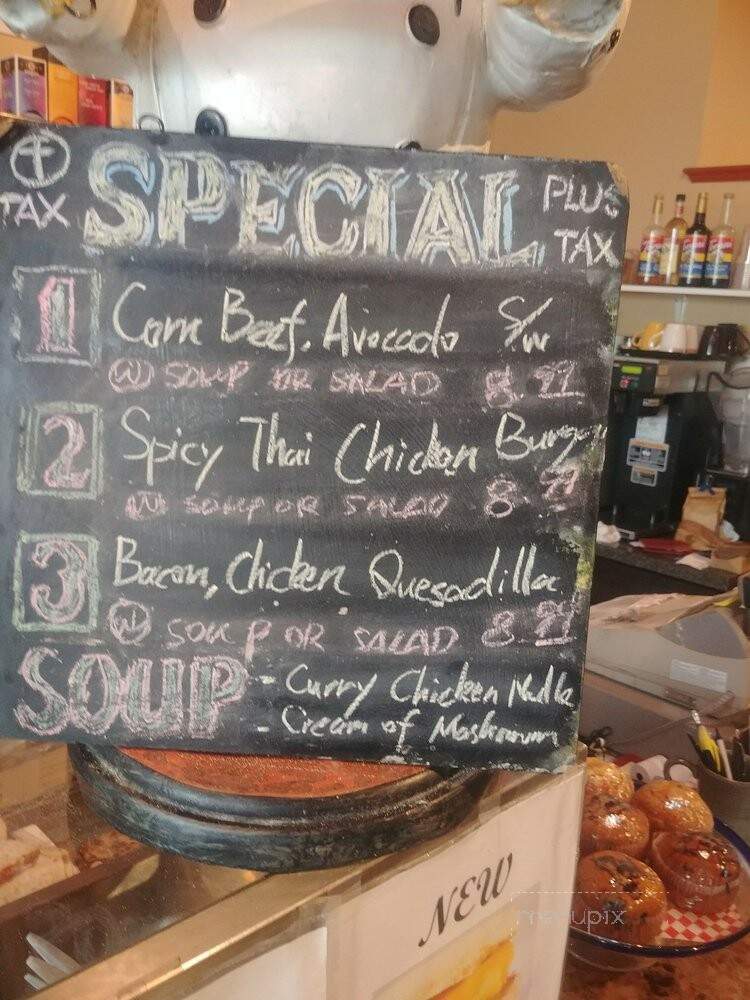 + TAX
SPECIAL
PLUS TAX
1 Corn Beef, Avocado S/W
W SOUP OR SALAD 8.99
2 Spicy Thai Chicken Burger
W SOUP OR SALAD 8.99
3 Bacon, Chicken Quesadilla
W SOUP OR SALAD 8.99
SOUP - Curry Chicken Nudle
- Cream of Mashroom
NEW
menupix